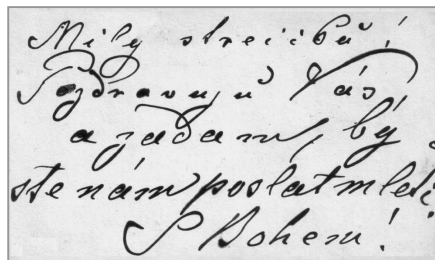 Milý strejčku!
Pozdravuju Vás
a žádám, by
ste nám poslat mleti.
S Bohem!